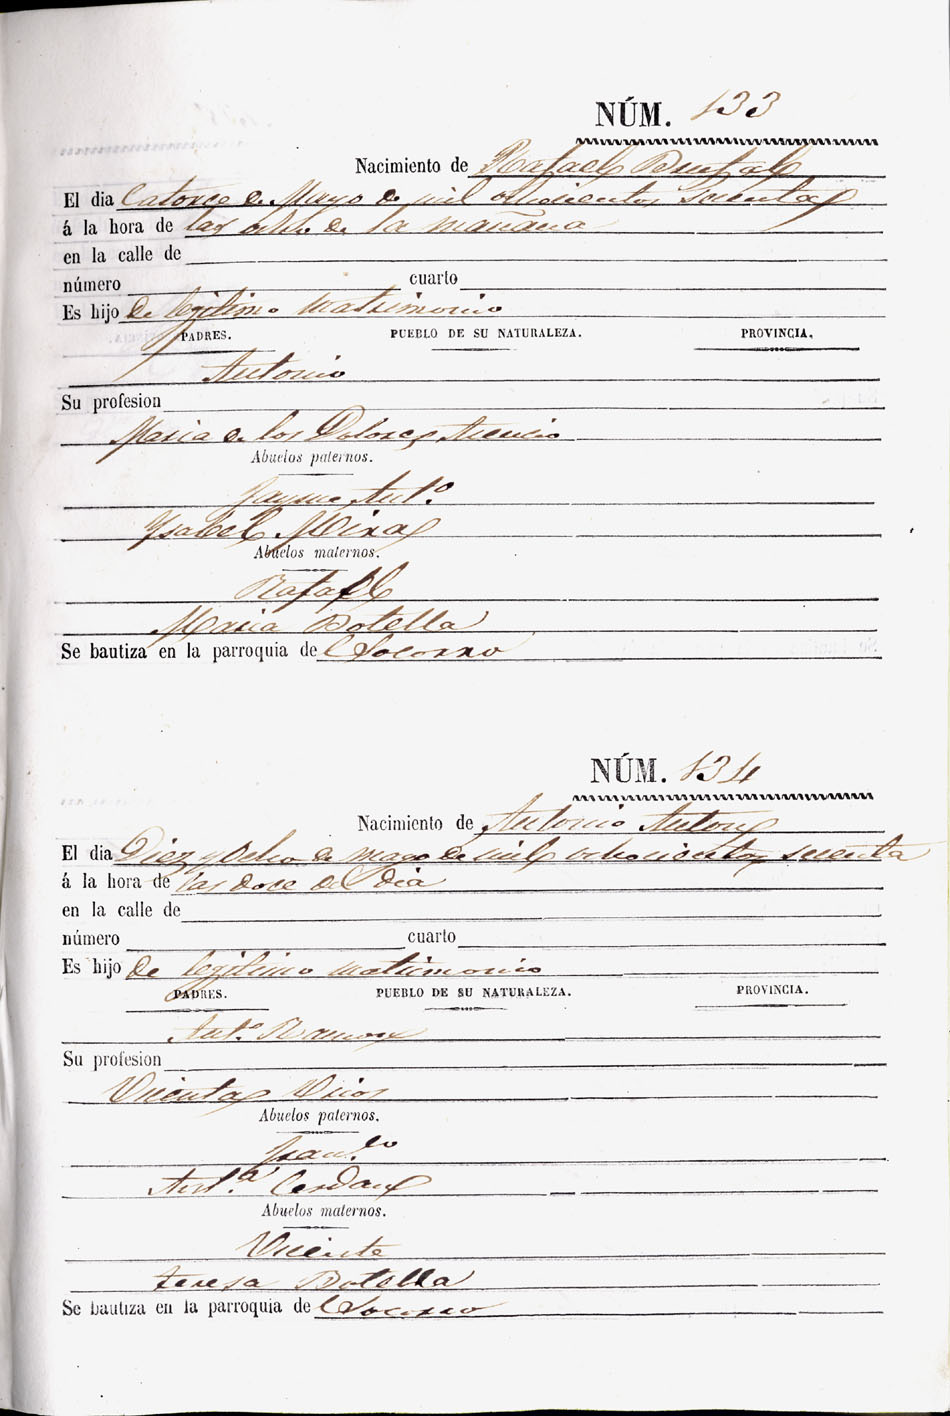 NÚM. 133
Nacimiento de Rafael Brufal
El dia Catorce de Mayo de mil ochocientos sesenta
á la hora de las ocho de la mañana
en la calle de
número cuarto
Es hijo de legitimo matrimonio
PADRES. PUEBLO DE SU NATURALEZA. PROVINCIA.
Antonio
Su profesion
Maria de los Dolores Asencio
Abuelos paternos.
Jayme Ant.º
Ysabel Mira
Abuelos maternos.
Rafael
Maria Botella
Se bautiza en la parroquia de Socorro
NÚM. 134
Nacimiento de Antonio Anton
El dia Diez y Ocho de mayo de mil ochocientos sesenta
á la hora de las doce del dia
en la calle de
número cuarto
Es hijo de legitimo matrimonio
PADRES. PUEBLO DE SU NATURALEZA. PROVINCIA.
Ant.º Ramon
Su profesion
Vicenta
Abuelos paternos.
Fran.co
Ant.a Cerdan
Abuelos maternos.
Vicente
teresa Botella
Se bautiza en la parroquia de Socorro